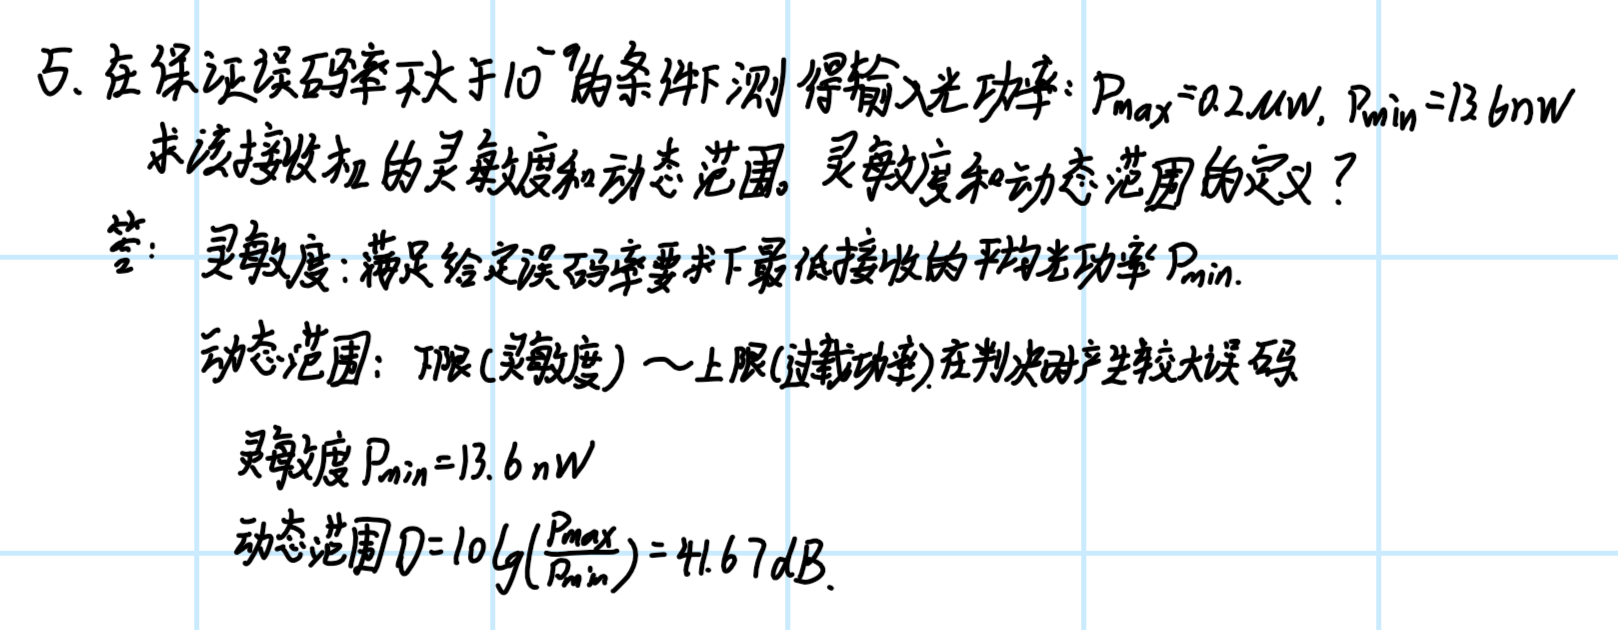 5. 在保证误码率不大于10⁻⁹的条件下测得输入光功率：Pmax=0.2μW, Pmin=13.6nW
求该接收机的灵敏度和动态范围。灵敏度和动态范围的定义？
答：灵敏度：满足给定误码率要求下最低接收的平均光功率Pmin.
动态范围：下限(灵敏度)～上限(过载功率).在判决时产生较大误码
灵敏度Pmin=13.6nW
动态范围D=10lg(Pmax/Pmin)=41.67dB.